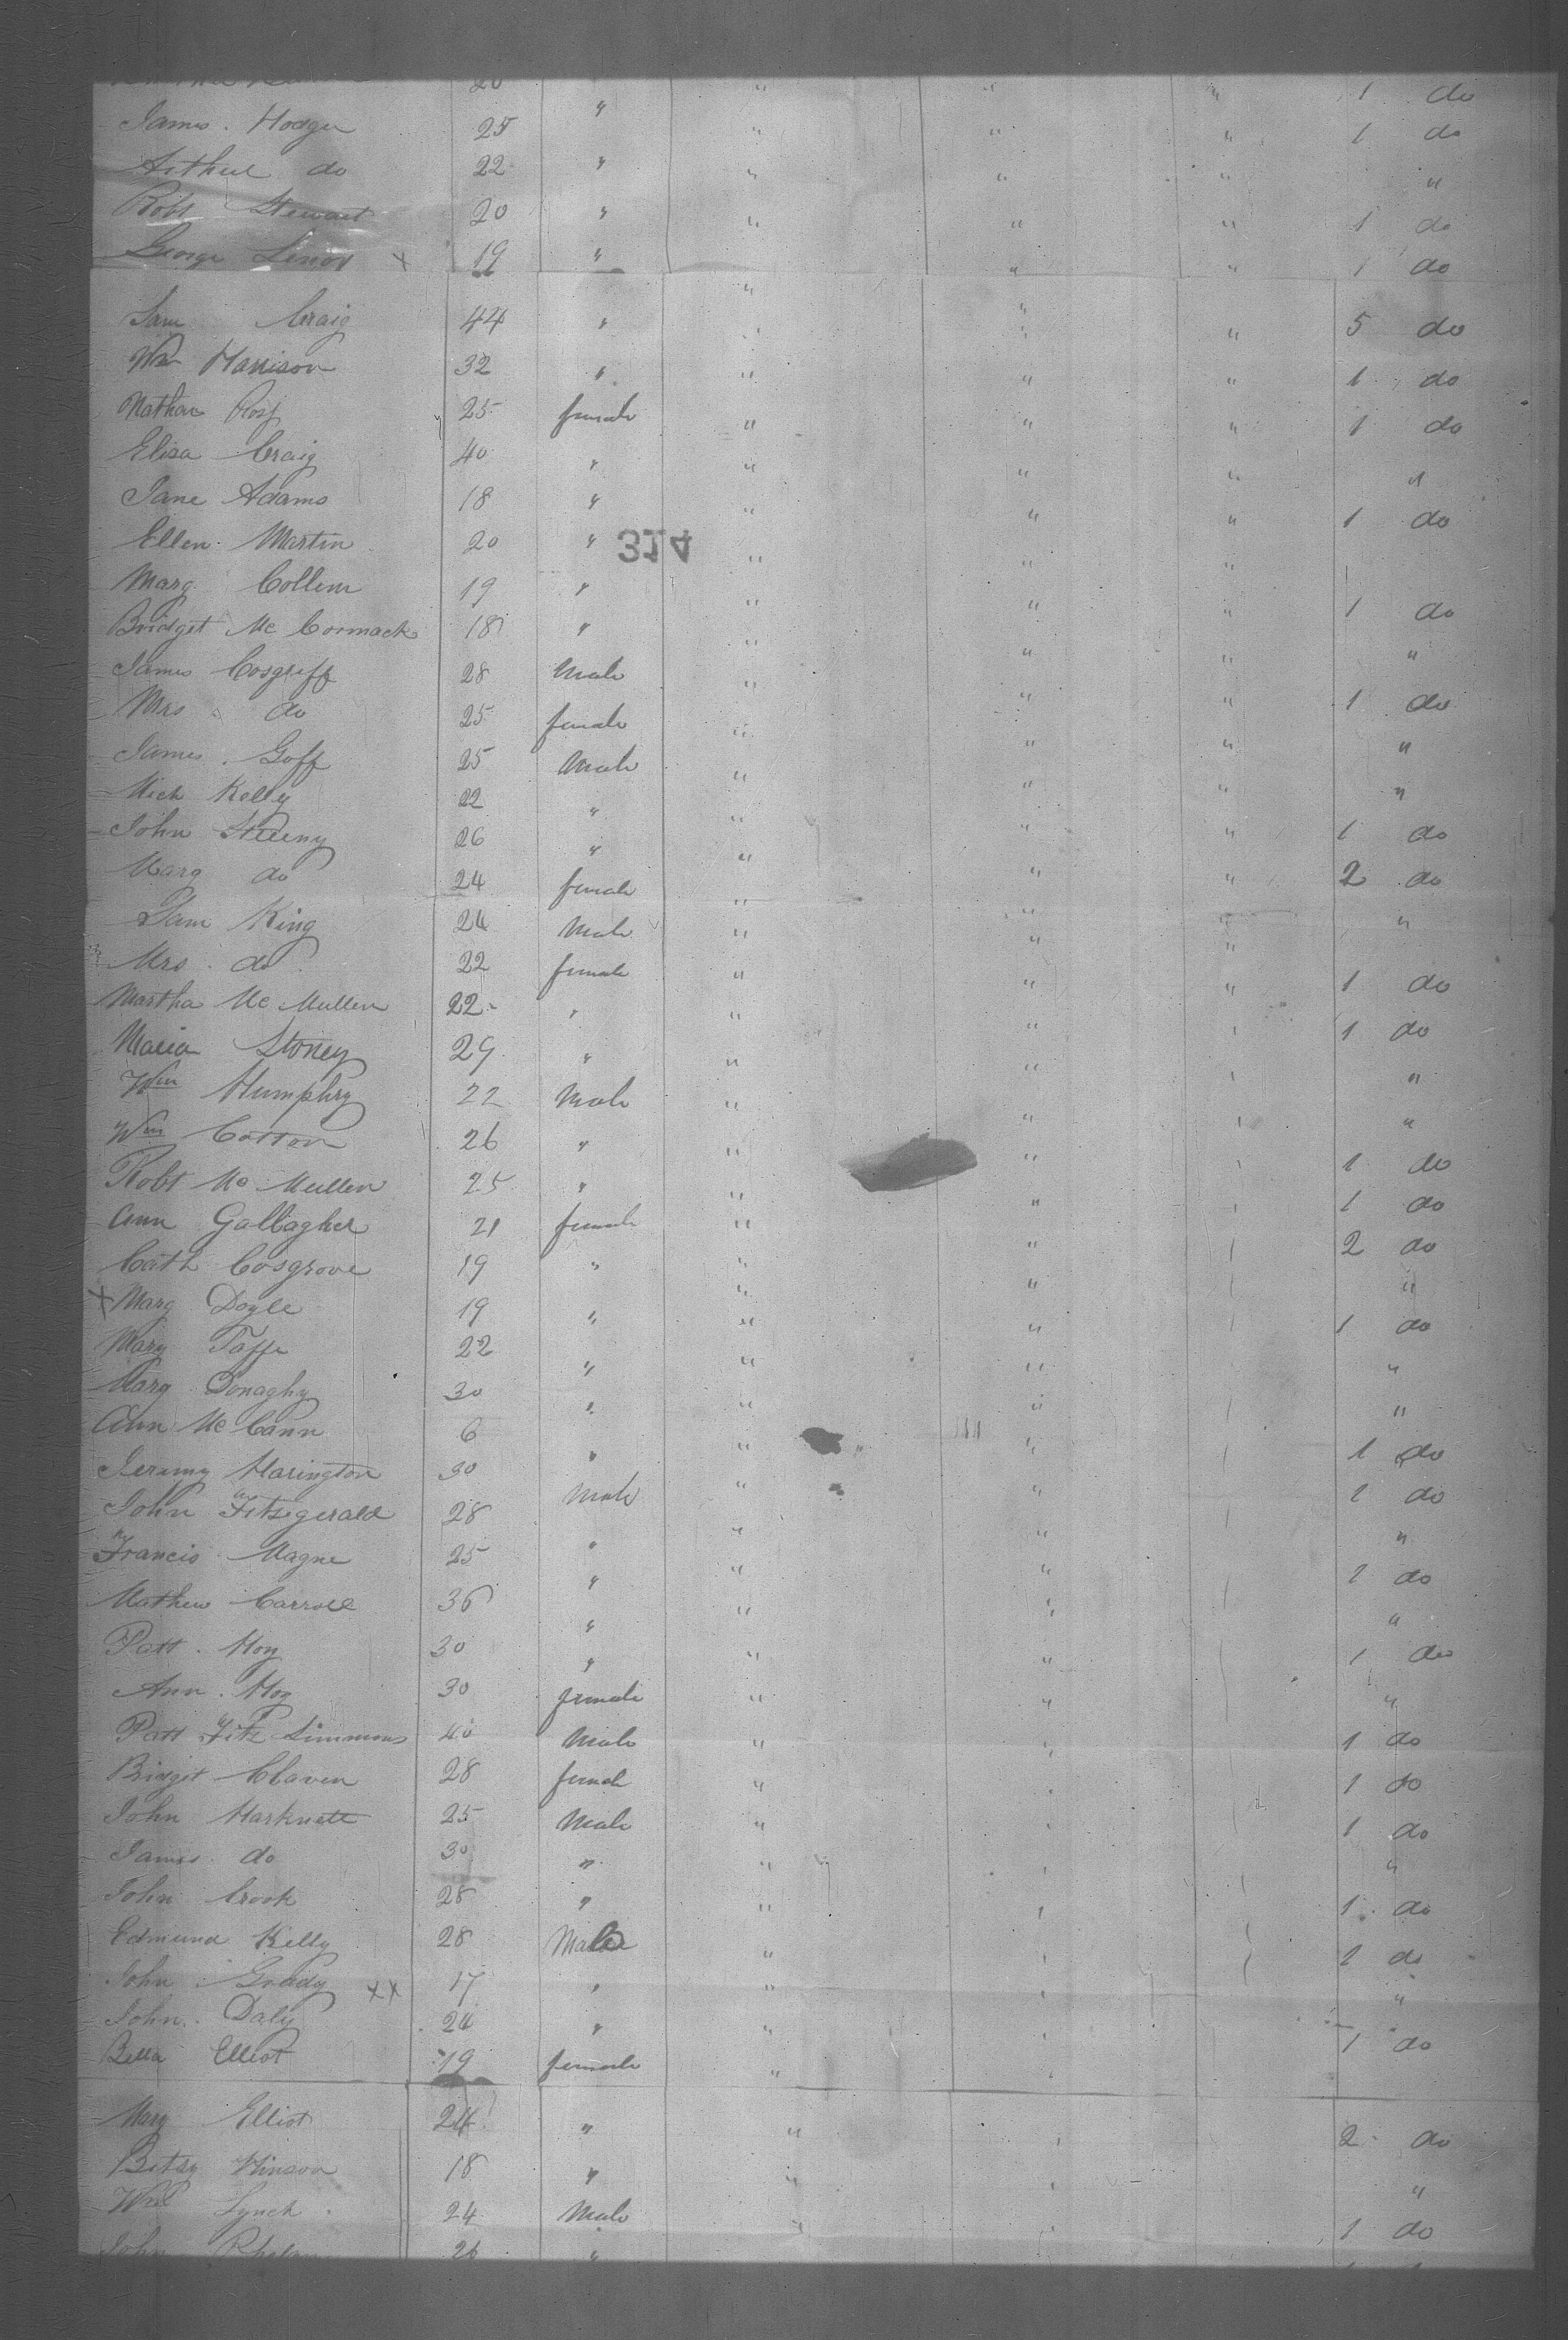 20 " " " 1 do
James Hodger 25 " " " " 1 do
Arthur do 22 " " " " "
Robt Stewart 20 " " " " 1 do
George Lenox x 19 " " " " 1 do
Sam Craig 44 " " " " 5 do
Wm Harrison 32 " " " " 1 do
Nathan Ross 25 female " " " 1 do
Elisa Craig 40 " " " " "
Jane Adams 18 " " " " 1 do
Ellen Martin 20 " " " "
314
Marg Collem 19 " " " " 1 do
Bridget Mc Cormack 18 " " " " "
James Cosgriff 28 Male " " " 1 do
Mrs do 25 female " " " "
James Goff 25 Male " " " "
Mich Kelly 22 " " " " 1 do
John 26 " " " " 2 do
Marg do 24 female " " " "
Sam King 24 Male " " "
Mrs do 22 female " " " 1 do
Martha Mc Mullen 22 " " " " 1 do
Maria Stoney 29 " " " " "
Wm Humphry 22 Male " " " "
Wm Cotton 26 " " " " 1 do
Robt Mc Mullen 25 " " " " 1 do
Ann Gallagher 21 female " " " 2 do
Cath Cosgrove 19 " " " " "
x Marg Doyle 19 " " " " 1 do
Mary Taffe 22 " " " " "
Marg Donaghy 30 " " " " "
Ann Mc Cann 6 " " " " 1 do
Jeremy Harington 30 Male " " " 1 do
John Fitzgerald 28 " " " " "
Francis Magne 25 " " " " 1 do
Mathew Carroll 36 " " " " "
Patt Hoy 30 " " " " 1 do
Ann Hoy 30 female " " " "
Patt Fitz Simmons 40 Male " " 1 do
Bridget Claven 28 female " " 1 do
John Harknett 25 Male " " 1 do
James do 30 " " " "
John Crook 28 " " " 1 do
Edmund Kelly 28 Male " " 1 do
John Grady xx 17 " " " "
John Daly 24 " " " 1 do
Bella Elliot 19 female " "
Mary Elliot 24 " " " 2 do
Betsy Hinson 18 " " " "
Wm Lynch 24 Male " " 1 do
John Phelan 26 "